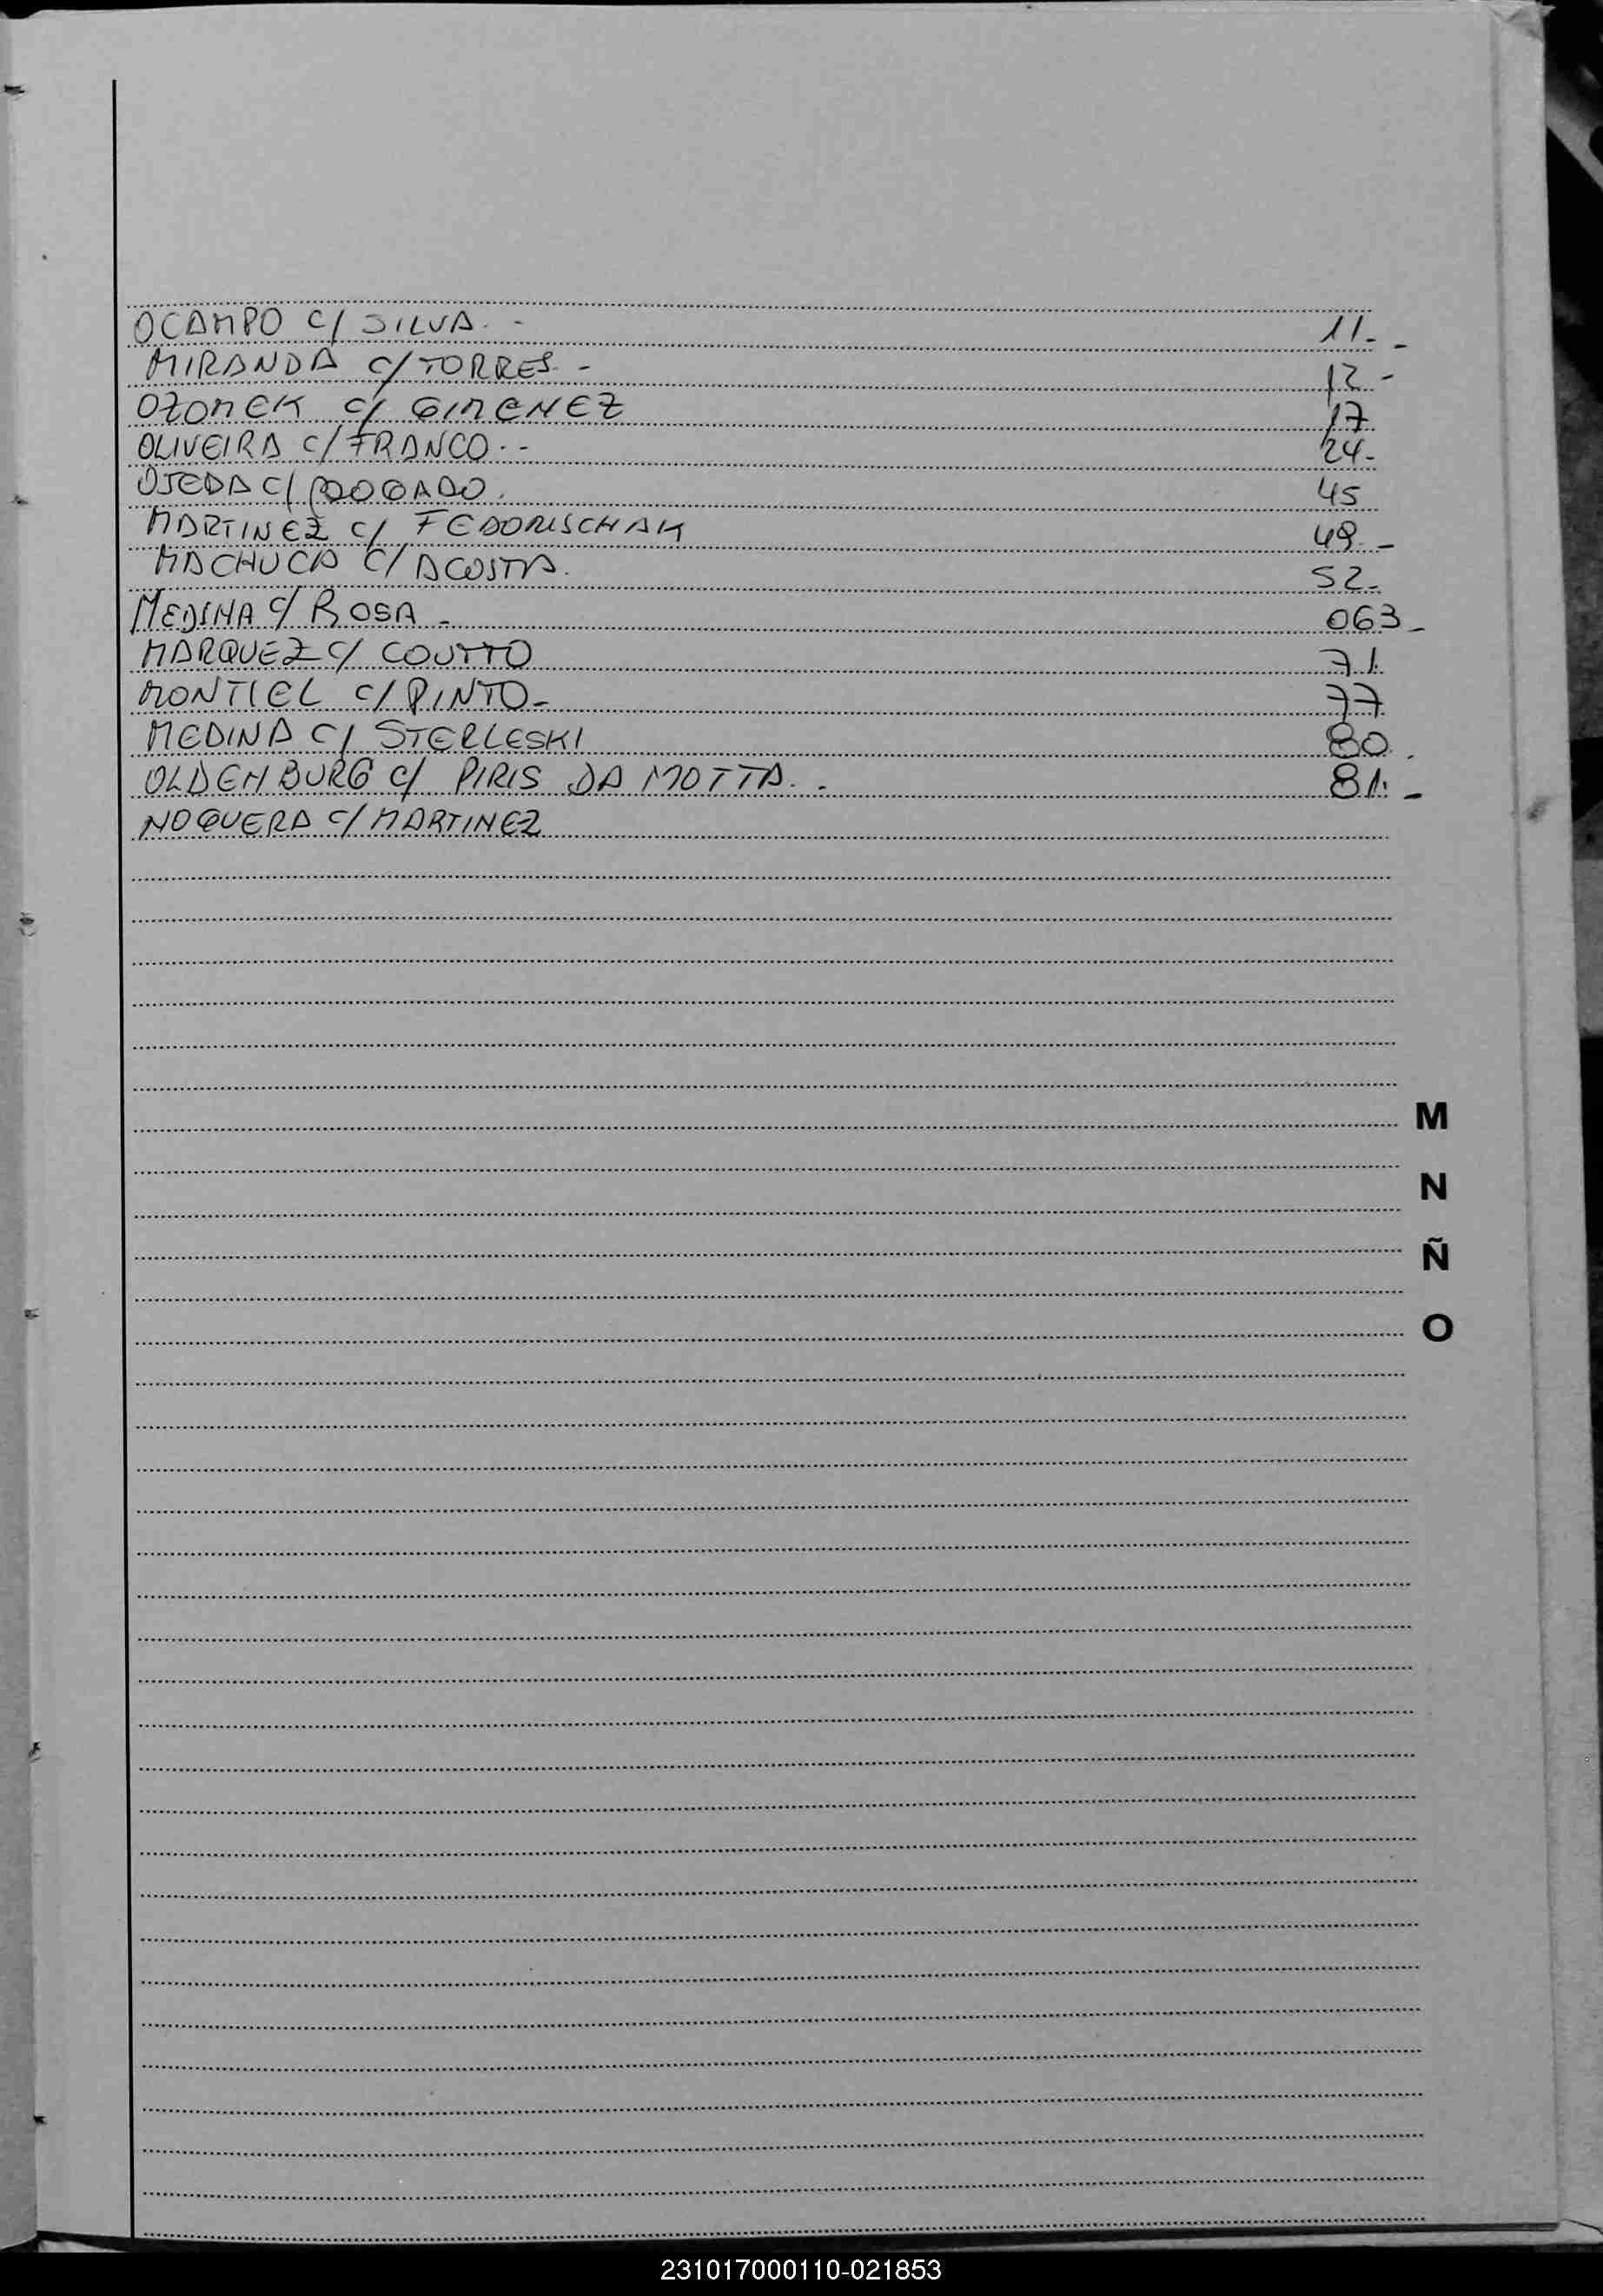 OCAMPO C/ SILVA. - 11. -
MIRANDA C/ TORRES. - 12 -
OZOMEK C/ GIMENEZ 17
OLIVEIRA C/ FRANCO. - 24.
OJEDA C/ 45
MARTINEZ C/ FEDORISCHAK 48 -
MACHUCA C/ ACOSTA. 52.
MEDINA C/ ROSA - 063 -
MARQUEZ C/ COUTTO 71.
MONTIEL C/ PINTO - 77
MEDINA C/ STERLESKI 80.
OLDENBURG C/ PIRIS DA MOTTA. - 81. -
NOGUERA C/ MARTINEZ
M
N
Ñ
O
231017000110-021853